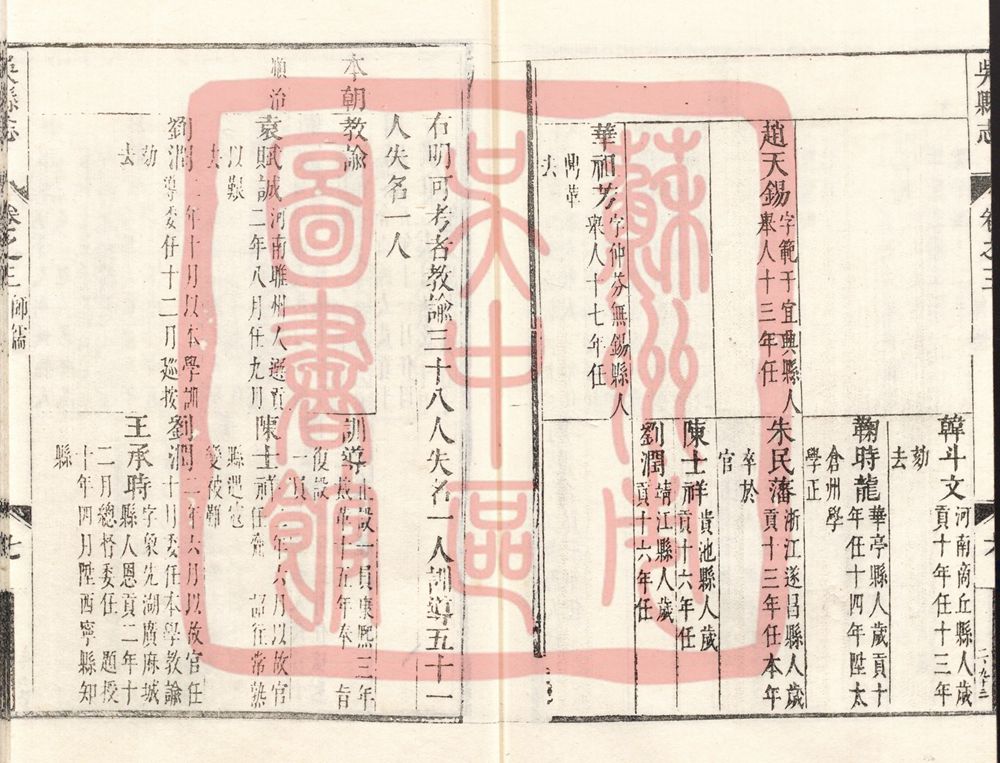 吳縣志
卷之三
韓斗文河南商丘縣人歲
貢十年任十三年
劾
去
鞠時龍華亭縣人歲貢十
年任十四年陞太
倉州學
學正
趙天錫字範干宜興縣人
舉人十三年任
朱民藩浙江遂昌縣人歲
貢十三年任本年
卒於
官
陳士祥貴池縣人歲
貢十六年任
華祖芳字仲芬無錫縣人
舉人十七年任
鼎革
去
劉潤靖江縣人歲
貢十六年任
右明可考者教諭三十八人失名一人訓導五十一
人失名一人
本朝教諭
訓導止設一員康熙三年
裁革十五年奉 旨
復設
一員
順治
袁賦誠河南睢州人選貢
二年八月任九月
以艱
去
陳士祥二年六月以故官
任詹 詔往常熟
縣遇寇
變被難
劉潤二年十月以本學訓
導委任十二月廵按
劾
去
劉潤二年六月以故官任
十月委任本學教諭
王承時字象先湖廣麻城
縣人恩貢二年十
二月總督委任 題授
十年四月陞西寧縣知
縣
吳縣志
卷之三
師儒
七
蘇州市
吴中區
圖書館